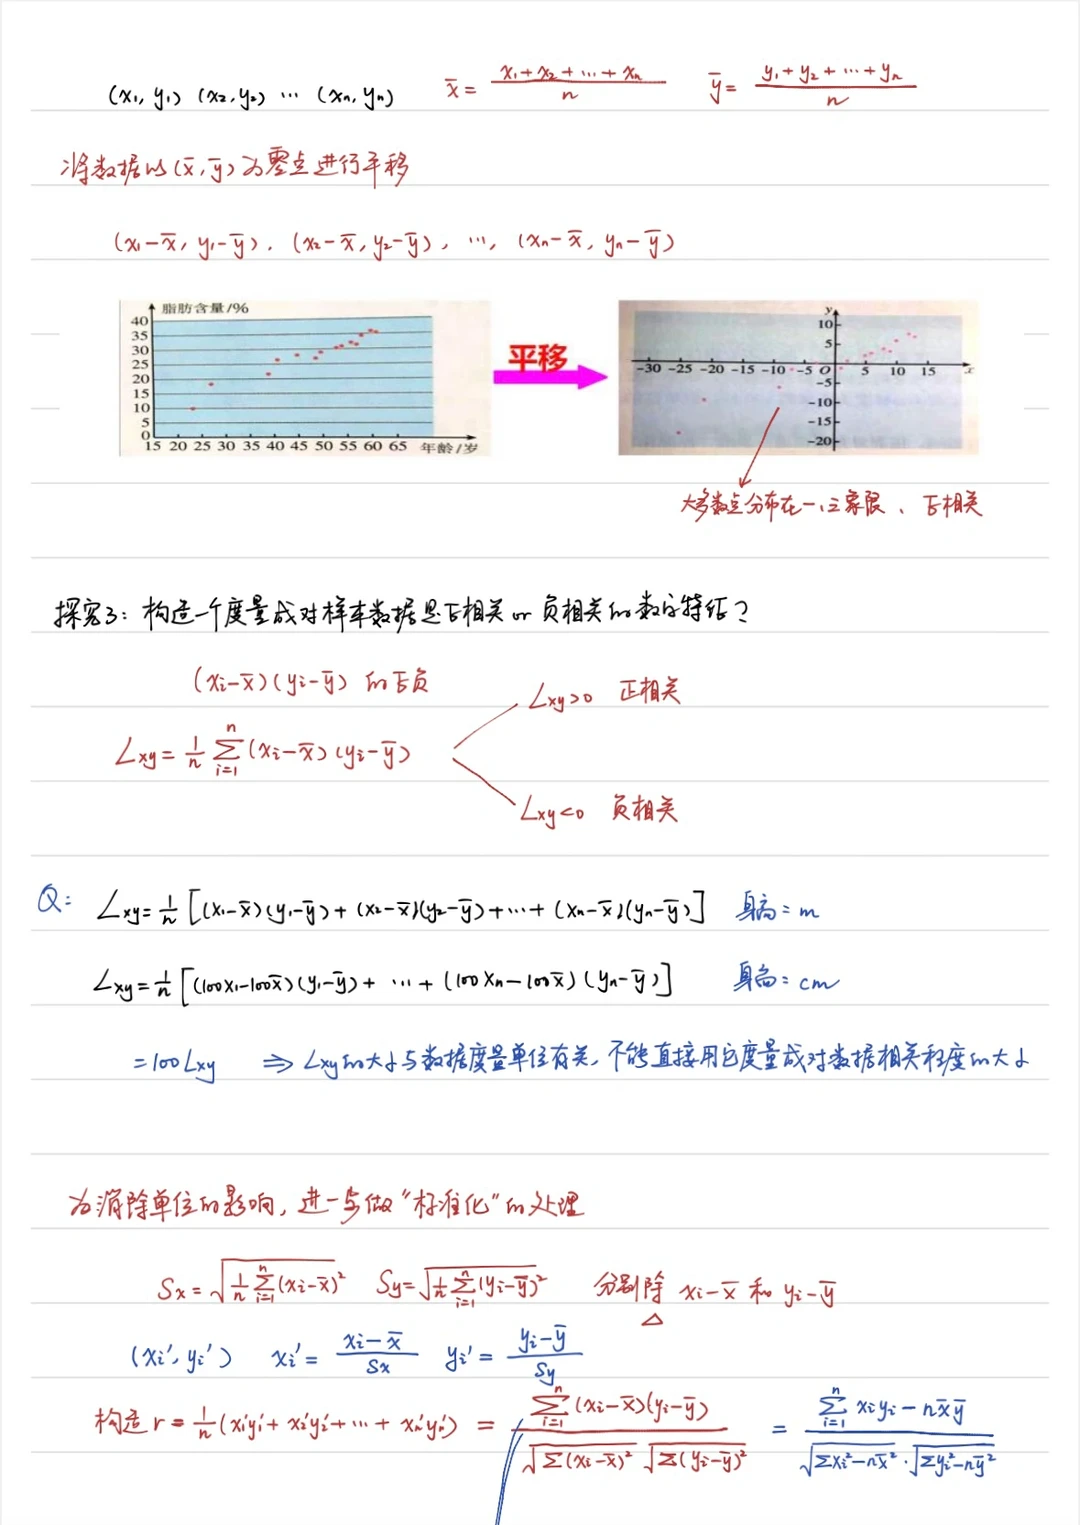 (x₁, y₁) (x₂, y₂) ⋯ (xₙ, yₙ) x̄ = (x₁+x₂+⋯+xₙ)/n ȳ = (y₁+y₂+⋯+yₙ)/n
将数据以(x̄, ȳ)为零点进行平移
(x₁−x̄, y₁−ȳ), (x₂−x̄, y₂−ȳ), ⋯, (xₙ−x̄, yₙ−ȳ)
脂肪含量/%
40
35
30
25
20
15
10
5
0
15 20 25 30 35 40 45 50 55 60 65 年龄/岁
平移
y
10
5
−30 −25 −20 −15 −10 −5 O 5 10 15 x
−5
−10
−15
−20
大多数点分布在一、三象限、正相关
探究3: 构造一个度量成对样本数据是正相关 or 负相关的数字特征?
(xᵢ−x̄)(yᵢ−ȳ) 的正负
Lxy>0 正相关
Lxy = 1/n ∑ⁿᵢ₌₁ (xᵢ−x̄)(yᵢ−ȳ)
Lxy<0 负相关
Q: Lxy = 1/n [(x₁−x̄)(y₁−ȳ)+(x₂−x̄)(y₂−ȳ)+⋯+(xₙ−x̄)(yₙ−ȳ)] 身高: m
Lxy = 1/n [(100x₁−100x̄)(y₁−ȳ)+ ⋯ +(100xₙ−100x̄)(yₙ−ȳ)] 身高: cm
=100Lxy ⇒ Lxy的大小与数据度量单位有关, 不能直接用它度量成对数据相关程度的大小
为消除单位的影响, 进一步做"标准化"的处理
Sx = √(1/n ∑ⁿᵢ₌₁(xᵢ−x̄)²) Sy = √(1/n ∑ⁿᵢ₌₁(yᵢ−ȳ)²) 分别除 xᵢ−x̄ 和 yᵢ−ȳ
(xᵢ′, yᵢ′) xᵢ′ = (xᵢ−x̄)/Sx yᵢ′ = (yᵢ−ȳ)/Sy
构造 r = 1/n (x₁′y₁′+x₂′y₂′+⋯+xₙ′yₙ′) = ∑ⁿᵢ₌₁(xᵢ−x̄)(yᵢ−ȳ) / √∑(xᵢ−x̄)² √∑(yᵢ−ȳ)² = ∑ⁿᵢ₌₁ xᵢyᵢ−nx̄ȳ / √∑xᵢ²−nx̄² · √∑yᵢ²−nȳ²